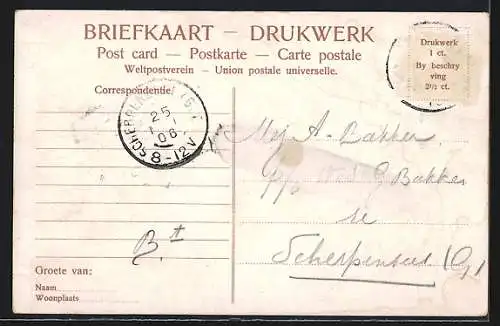 BRIEFKAART — DRUKWERK
Post card — Postkarte — Carte postale
Weltpostverein – Union postale universelle.
Drukwerk
1 ct.
By beschry
ving
2½ ct.
Correspondentie
25
1 06
8-12V
Mej A- Bakker
Wed G Bakker
te
Scherpenzeel (G)
B.t
Groete van:
Naam
Woonplaats